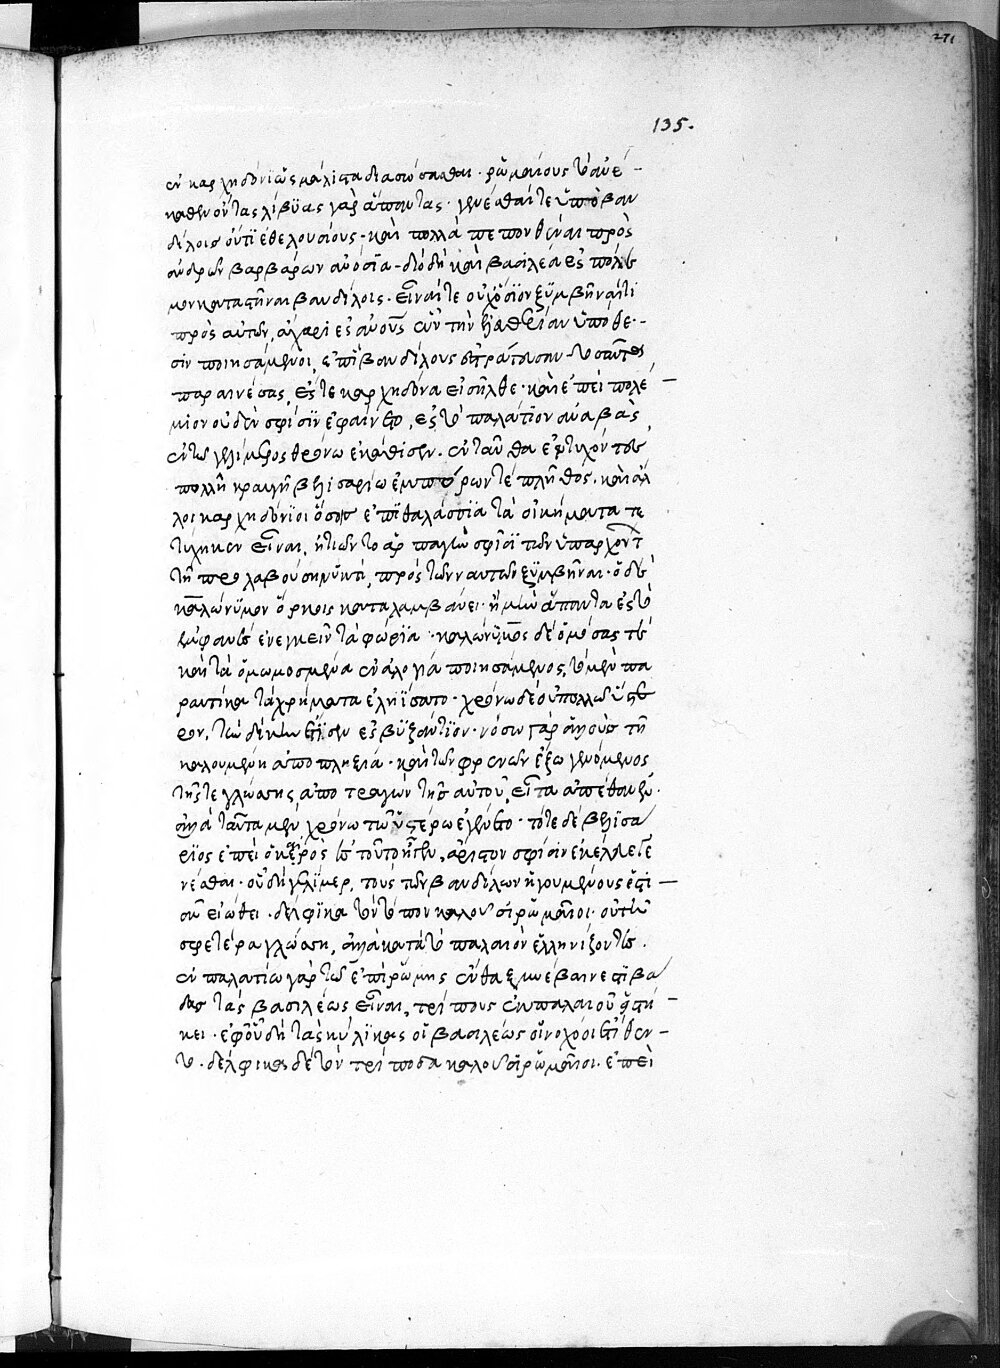 271
135.
ἐν καρχηδονίοις μάλιστα διασώσασθαι. ῥωμαίους τὸ ἀνέ-
καθεν ὄντας λίβυας γὰρ ἅπαντας. γενέσθαι τε ὑπὸ βαν
δίλοις οὔτι ἐθελουσίους. καὶ πολλὰ πεπονθέναι πρὸς
ἀνδρῶν βαρβάρων ἀνόσια. διὸ δὴ καὶ βασιλέα ἐς πόλε
μον καταστῆναι βανδίλοις. εἶναί τε οὐχ ὅσιον ξυμβῆναί τι
πρὸς αὐτῶν, ἄχαρι ἐς ἀνους ὧν τὴν ἐλευθερίαν ὑπόθε-
σιν ποιησάμενοι, ἐπὶ βανδίλους ἐστράτευσαν. τοσαῦτα
παραινέσας, ἔς τε καρχηδόνα εἰσῆλθε. καὶ ἐπεὶ πολέ-
μιον οὐδὲν σφίσιν ἐφαίνετο, ἐς τὸ παλάτιον ἀναβὰς,
ἐν τῷ γελίμερος θρόνω ἐκάθισεν. ἐνταῦθα ἐντυχόντες
πολλῆ κραυγῆ βελισαρίω ἐμπόρων τε πλῆθος. καὶ ἄλ
λοι καρχηδόνιοι ὅσοις ἐπιθαλάσσια τὰ οἰκήματα τε
τύχηκεν εἶναι, ἠτιῶντο ἁρπαγὴν σφίσι τῶν ὑπαρχόντων
τῆ προλαβούση νυκτὶ, πρὸς τῶν ναυτῶν ξυμβῆναι. ὁ δὲ
καλώνυμον ὅρκοις καταλαμβάνει. ἦ μὴν ἅπαντα ἐς τὸ
ἐμφανὲς ἐνεγκεῖν τὰ φώρια. καλώνυμος δὲ ὀμόσας τε
καὶ τὰ ὀμωμοσμένα ἐν ἀλογία ποιησάμενος, τὸ μὲν πα
ραυτίκα τὰ χρήματα ἐληΐσατο. χρόνω δὲ οὐ πολλῶ ὕστε
ρον, τὴν δίκην ἔτισεν ἐς βυζάντιον. νόσω γὰρ ἁλοὺς τῆ
καλουμένη ἀποπληξία. καὶ τῶν φρενῶν ἔξω γενόμενος
τῆς τε γλώσσης, ἀποτραγὼν τῆς αὐτοῦ, εἶτα ἀπέθανεν.
ἀλλὰ ταῦτα μὲν χρόνω τῶ ὑστέρω ἐγένετο. τότε δὲ βελισά
ριος ἐπεὶ ὁ καιρὸς ἐς τοῦτο ἦγεν, ἄριστον σφίσιν ἐκέλευε γε
νέσθαι. οὗ δὴ γελίμερ, τοὺς τῶν βανδίλων ἡγουμένους ἑστι-
ᾶν εἰώθει. δέλφικα τὸν τόπον καλοῦσι ῥωμαῖοι. οὐ τῆ
σφετέρα γλώσση, ἀλλὰ κατὰ τὸ παλαιὸν ἑλληνίζοντες.
ἐν παλατίω γὰρ τῶ ἐπὶ ῥώμης ἔνθα ξυνέβαινε στιβά
δας τὰς βασιλέως εἶναι, τρίπους ἐκ παλαιοῦ εἱστή-
κει. ἐφ' οὗ δὴ τὰς κύλικας οἱ βασιλέως οἰνοχόοι ἐτίθεν-
το. δέλφικα δὲ τὸν τρίποδα καλοῦσι ῥωμαῖοι. ἐπεὶ